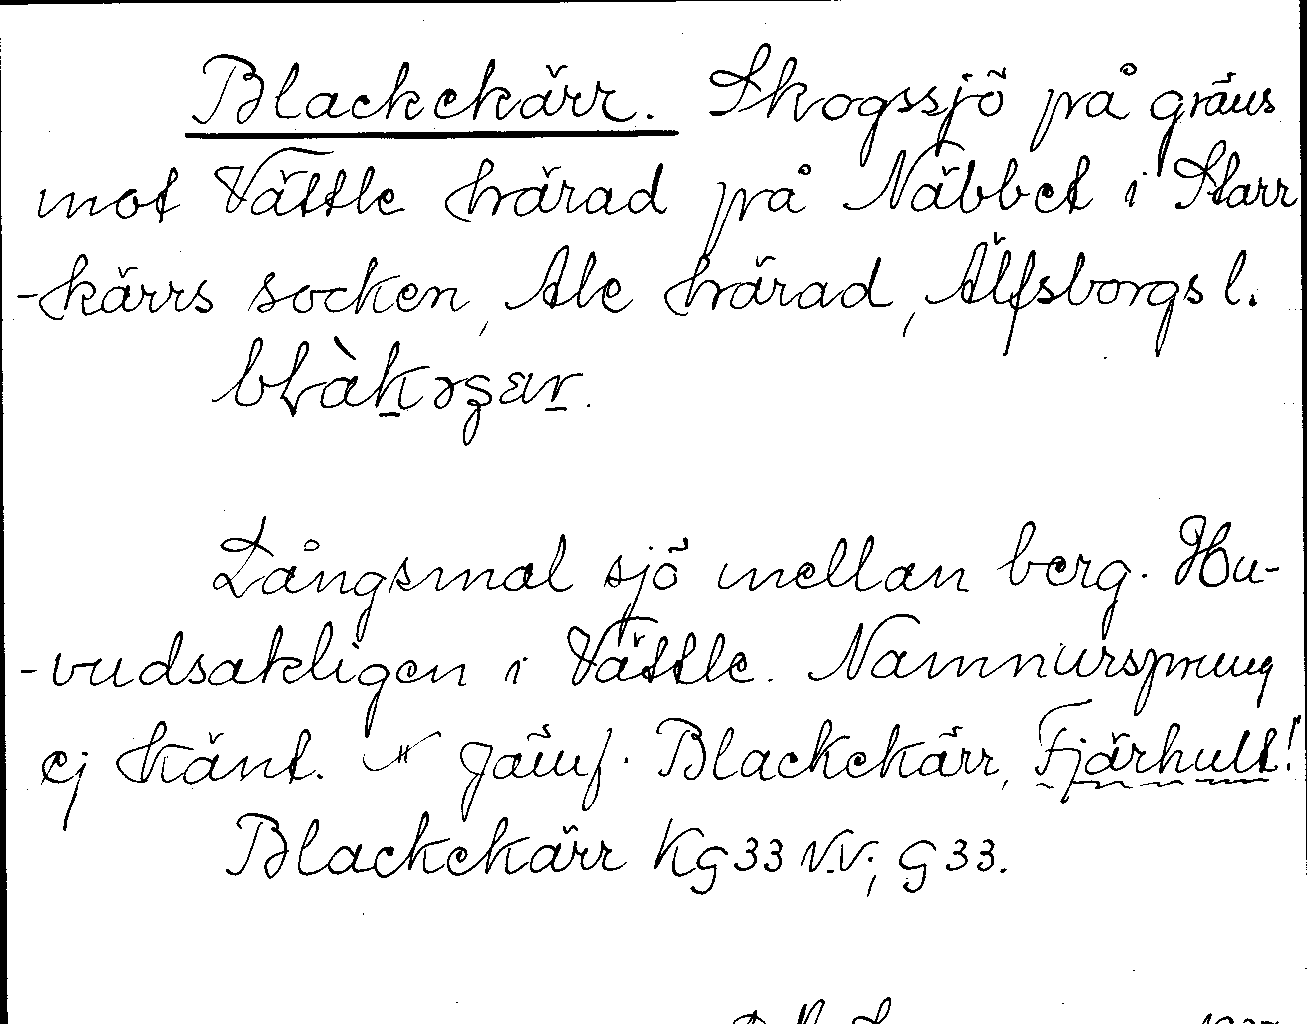 Blackekärr. Skogssjö på gräns
mot Vättle härad på Näbbet i Starr
-kärrs socken, Ale härad, Älfsborgs l.

Långsmal sjö mellan berg. Hu-
-vudsakligen i Vättle. Namnursprung
ej känt. Jämf. Blackekärr, Fjärhult!
Blackekärr Kg 33 N.V.; G 33.